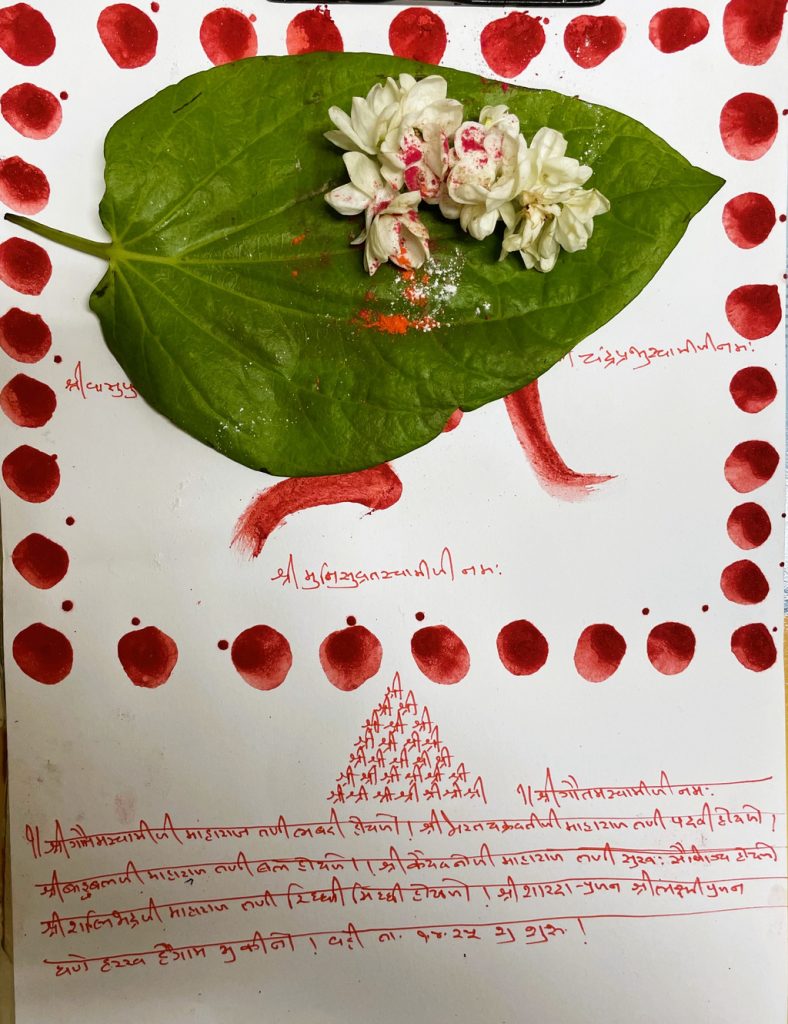 श्री वासुपु
चंद्रप्रभुस्वामीजी नमः
श्री मुनिसुव्रतस्वामीजी नमः
श्री
श्री श्री
श्री श्री श्री
श्री श्री श्री श्री
श्री श्री श्री श्री श्री
श्री श्री श्री श्री श्री श्री
श्री श्री श्री श्री श्री श्री श्री
॥ श्री गौतमस्वामीजी नमः
॥ श्री गौतमस्वामीजी माहाराज तणी लबदी होयजो। श्री भरतचक्रवर्तीजी माहाराज तणी पदवी होयजो।
श्री बाहुबलजी माहाराज तणी बल होयजो।। श्री कैयवनोजी माहाराज तणी सुखः सौभाग्य होयजो
श्री शालिभद्रजी माहाराज तणी रिध्धी सिध्धी होयजो। श्री शारदा-पुजन श्री लक्ष्मी पुजन
घणे हरख